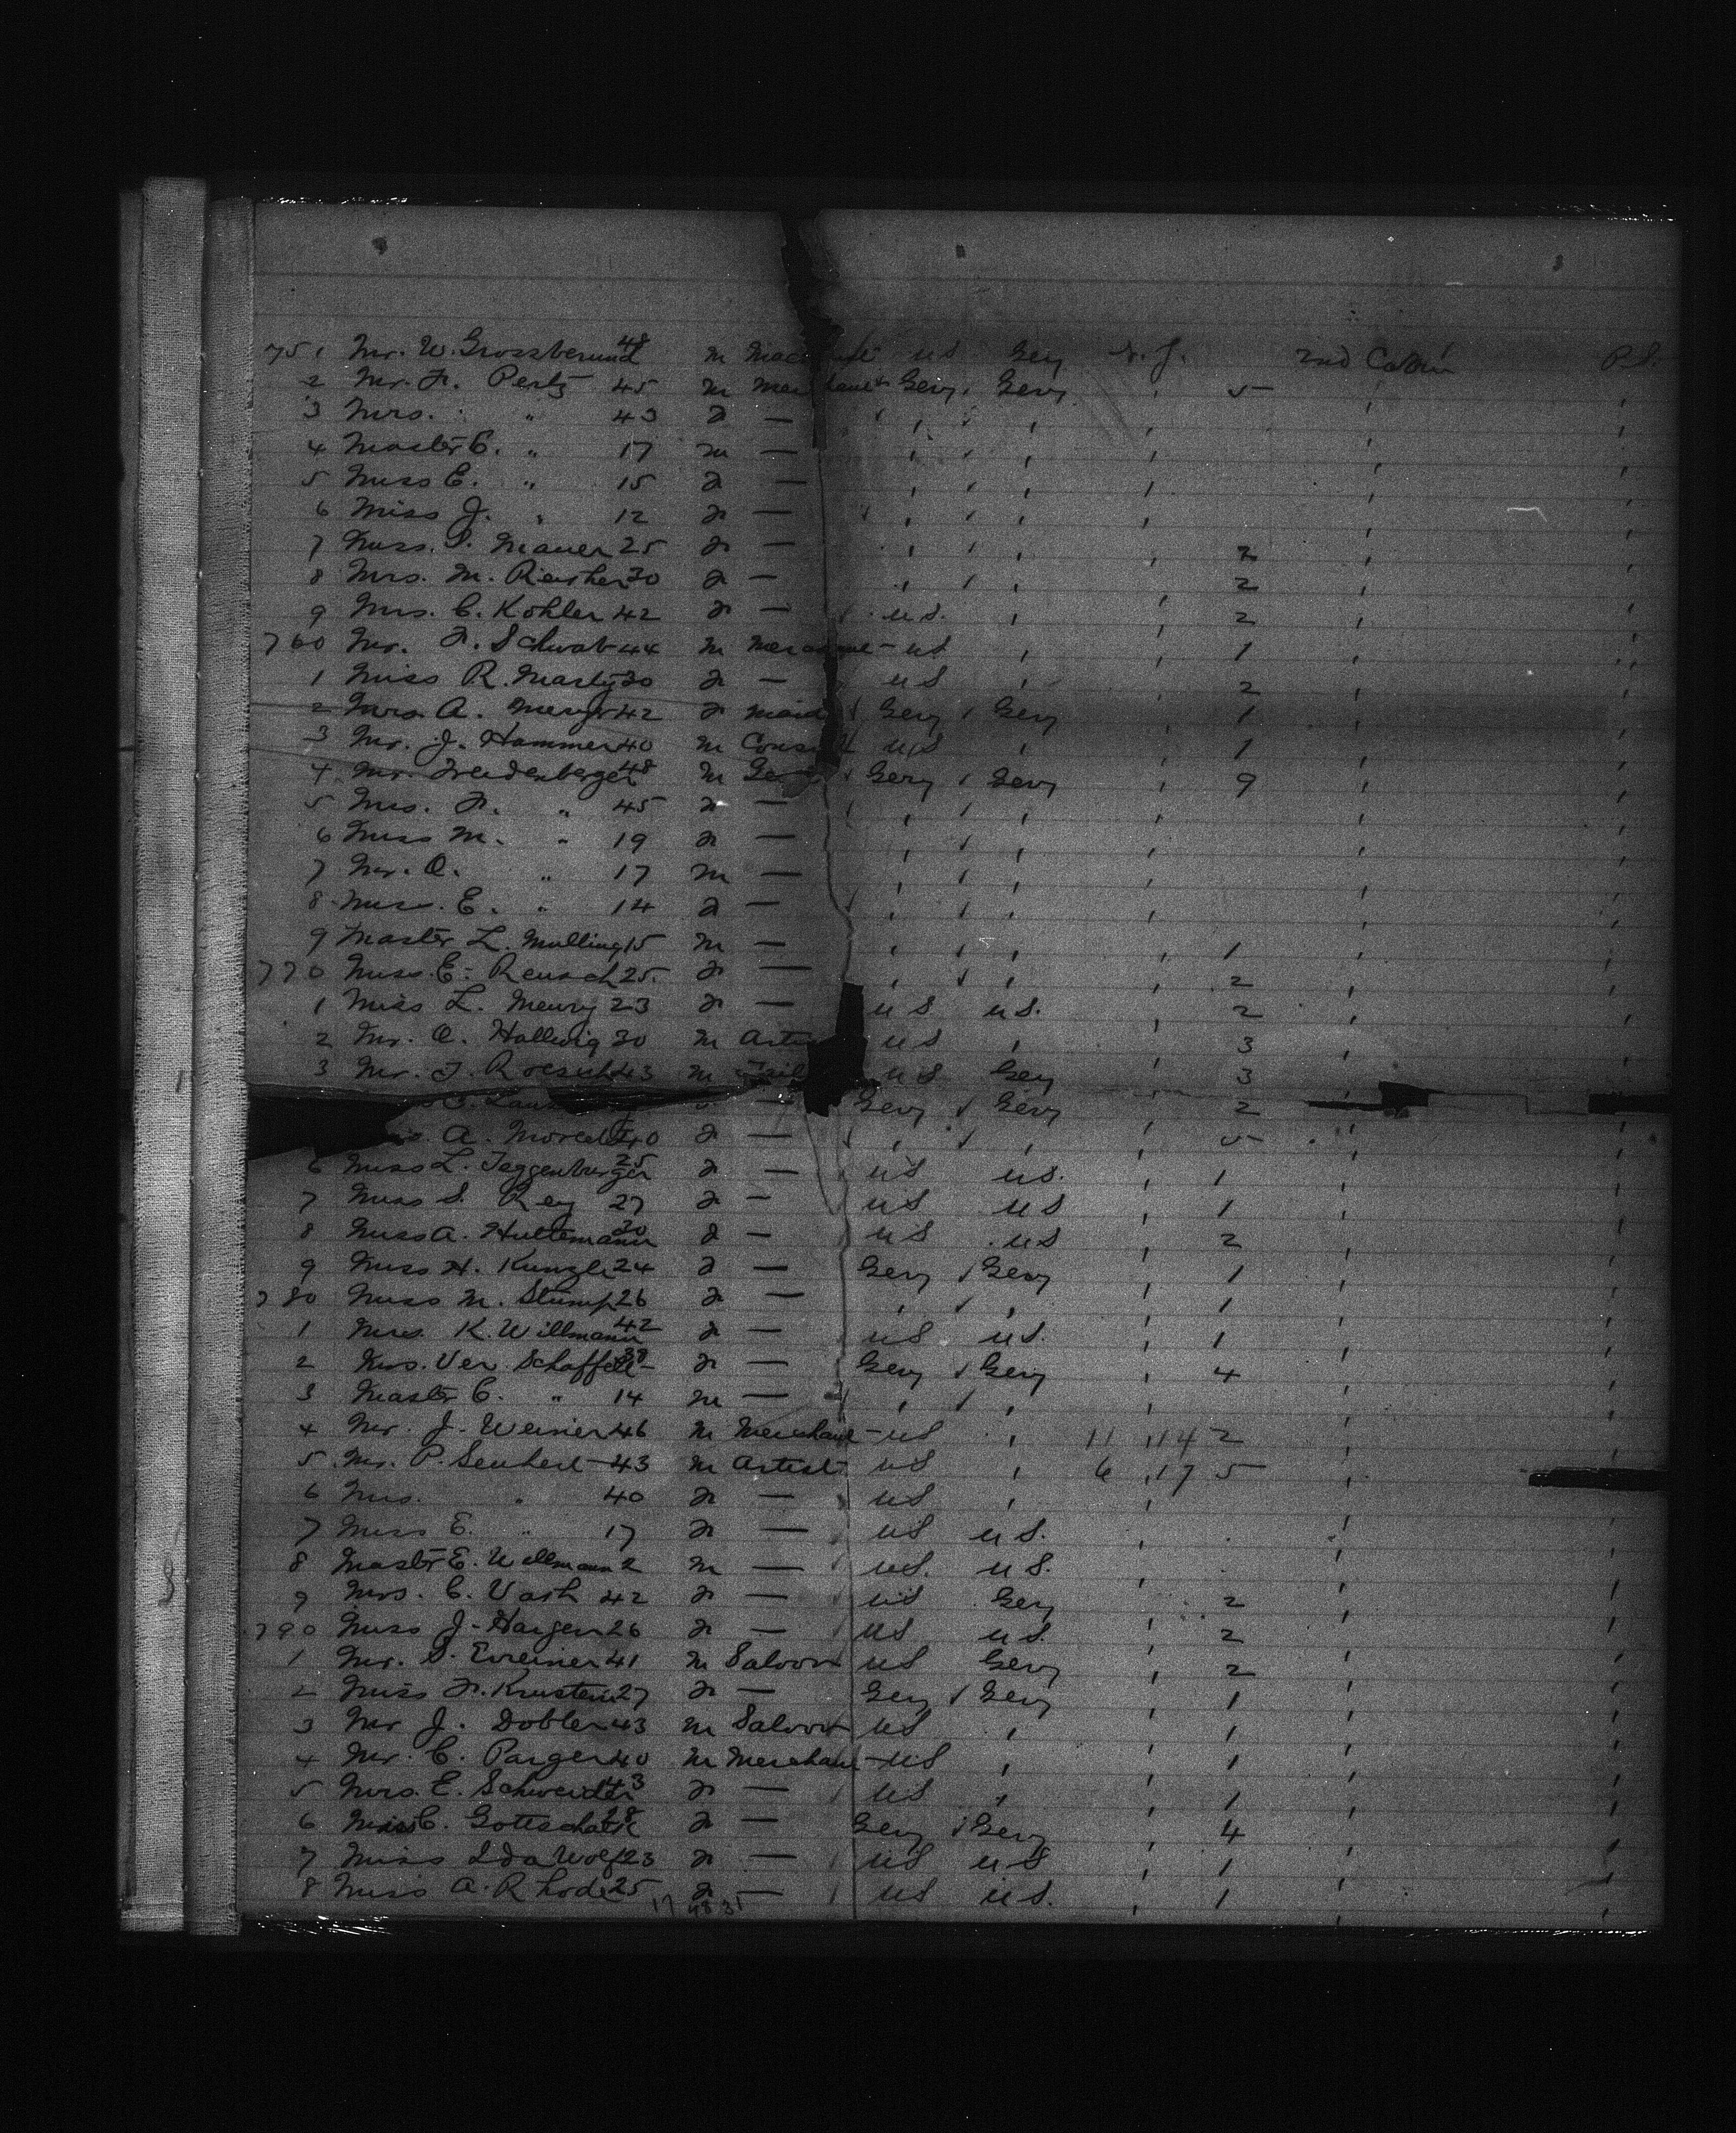 751 Mr. W. Grossberund 48 m us Gery N.Y. 2nd Cabin P.S.
2 Mr. F. Pertz 45 m Merchant Gery, Gery , 5 , ,
3 Mrs. " 43 f — , , , , ,
4 Master C. " 17 m — , , , , ,
5 Miss E. " 15 f — , , , , ,
6 Miss J. " 12 f — , , , , ,
7 Miss. S. Maner 25 f — , , , 2 , ,
8 Mrs. M. Reisher 30 f — , , , 2 , ,
9 Mrs. C. Kohler 42 f — us. , , 2 , ,
760 Mr. F. Schwab 44 m us , , 1 , ,
1 Miss R. Marty 30 f — us , , 2 , ,
2 Mrs. A. Menger 42 f maid Gery Gery , 1 , ,
3 Mr. J. Hammer 40 m us , , 1 , ,
4 Mr. Fredenberger 48 m Gery Gery , 9 , ,
5 Mrs. F. " 45 f — , , , , ,
6 Miss M. " 19 f — , , , , ,
7 Mr. O. " 17 m — , , , , ,
8 Miss. E. " 14 f — , , , , ,
9 Master L. Mulling 15 m — , , , 1 , ,
770 Miss. E. Reusch 25. f — , , , 2 , ,
1 Miss L. Meury 23 f — us us. , 2 , ,
2 Mr. O. Hallwig 30 m us , , 3 , ,
3 Mr. J. Roesch 43 m us Gery , 3 , ,
— Gery Gery , 2 , ,
A. 40 f — , , , 5 , ,
6 Miss L. Taggenburger 25 f — us us. , 1 , ,
7 Miss S. Rey 27 f — us us , 1 , ,
8 Miss A. Hultemann 30 f — us us , 2 , ,
9 Miss H. Kunzle 24 f — Gery Gery , 1 , ,
780 Miss M. Stümp 26 f — , , , 1 , ,
1 Mrs. K. Willmann 42 f — us us. , 1 , ,
2 Mrs. Ver. 38 f — Gery Gery , 4 , ,
3 Master C. " 14 m — , , , , ,
4 Mr. J. Weiner 46 m Merchant us , 11 114 2 , ,
5 Mr. P. Seuhert 43 m Artist us , 6 , 17 5 , ,
6 Mrs. " 40 f — us , , ,
7 Miss E. " 17 f — us us. , , ,
8 Master E. Willmann 2 m — us. us. , , ,
9 Mrs. C. Vash 42 f — us Gery , 2 , ,
790 Miss J. Hargen 26 f — us us. , 2 , ,
1 Mr. S. Evreiner 41 m Saloon us Gery , 2 , ,
2 Miss F. Krustein 27 f — Gery Gery , 1 , ,
3 Mr J. Dobler 43 m Saloon us , , 1 , ,
4 Mr. C. Parger 40 m Merchant us , , 1 , ,
5 Mrs. E. Schweidter 43 f — us , , 1 , ,
6 Miss C. Gottschalk 28 f — Gery Gery , 4 , ,
7 Miss Ida Wolf 23 f — us us , 1 , ,
8 Miss A. Rhode 25 f — us us. , 1 , ,
17 48 31